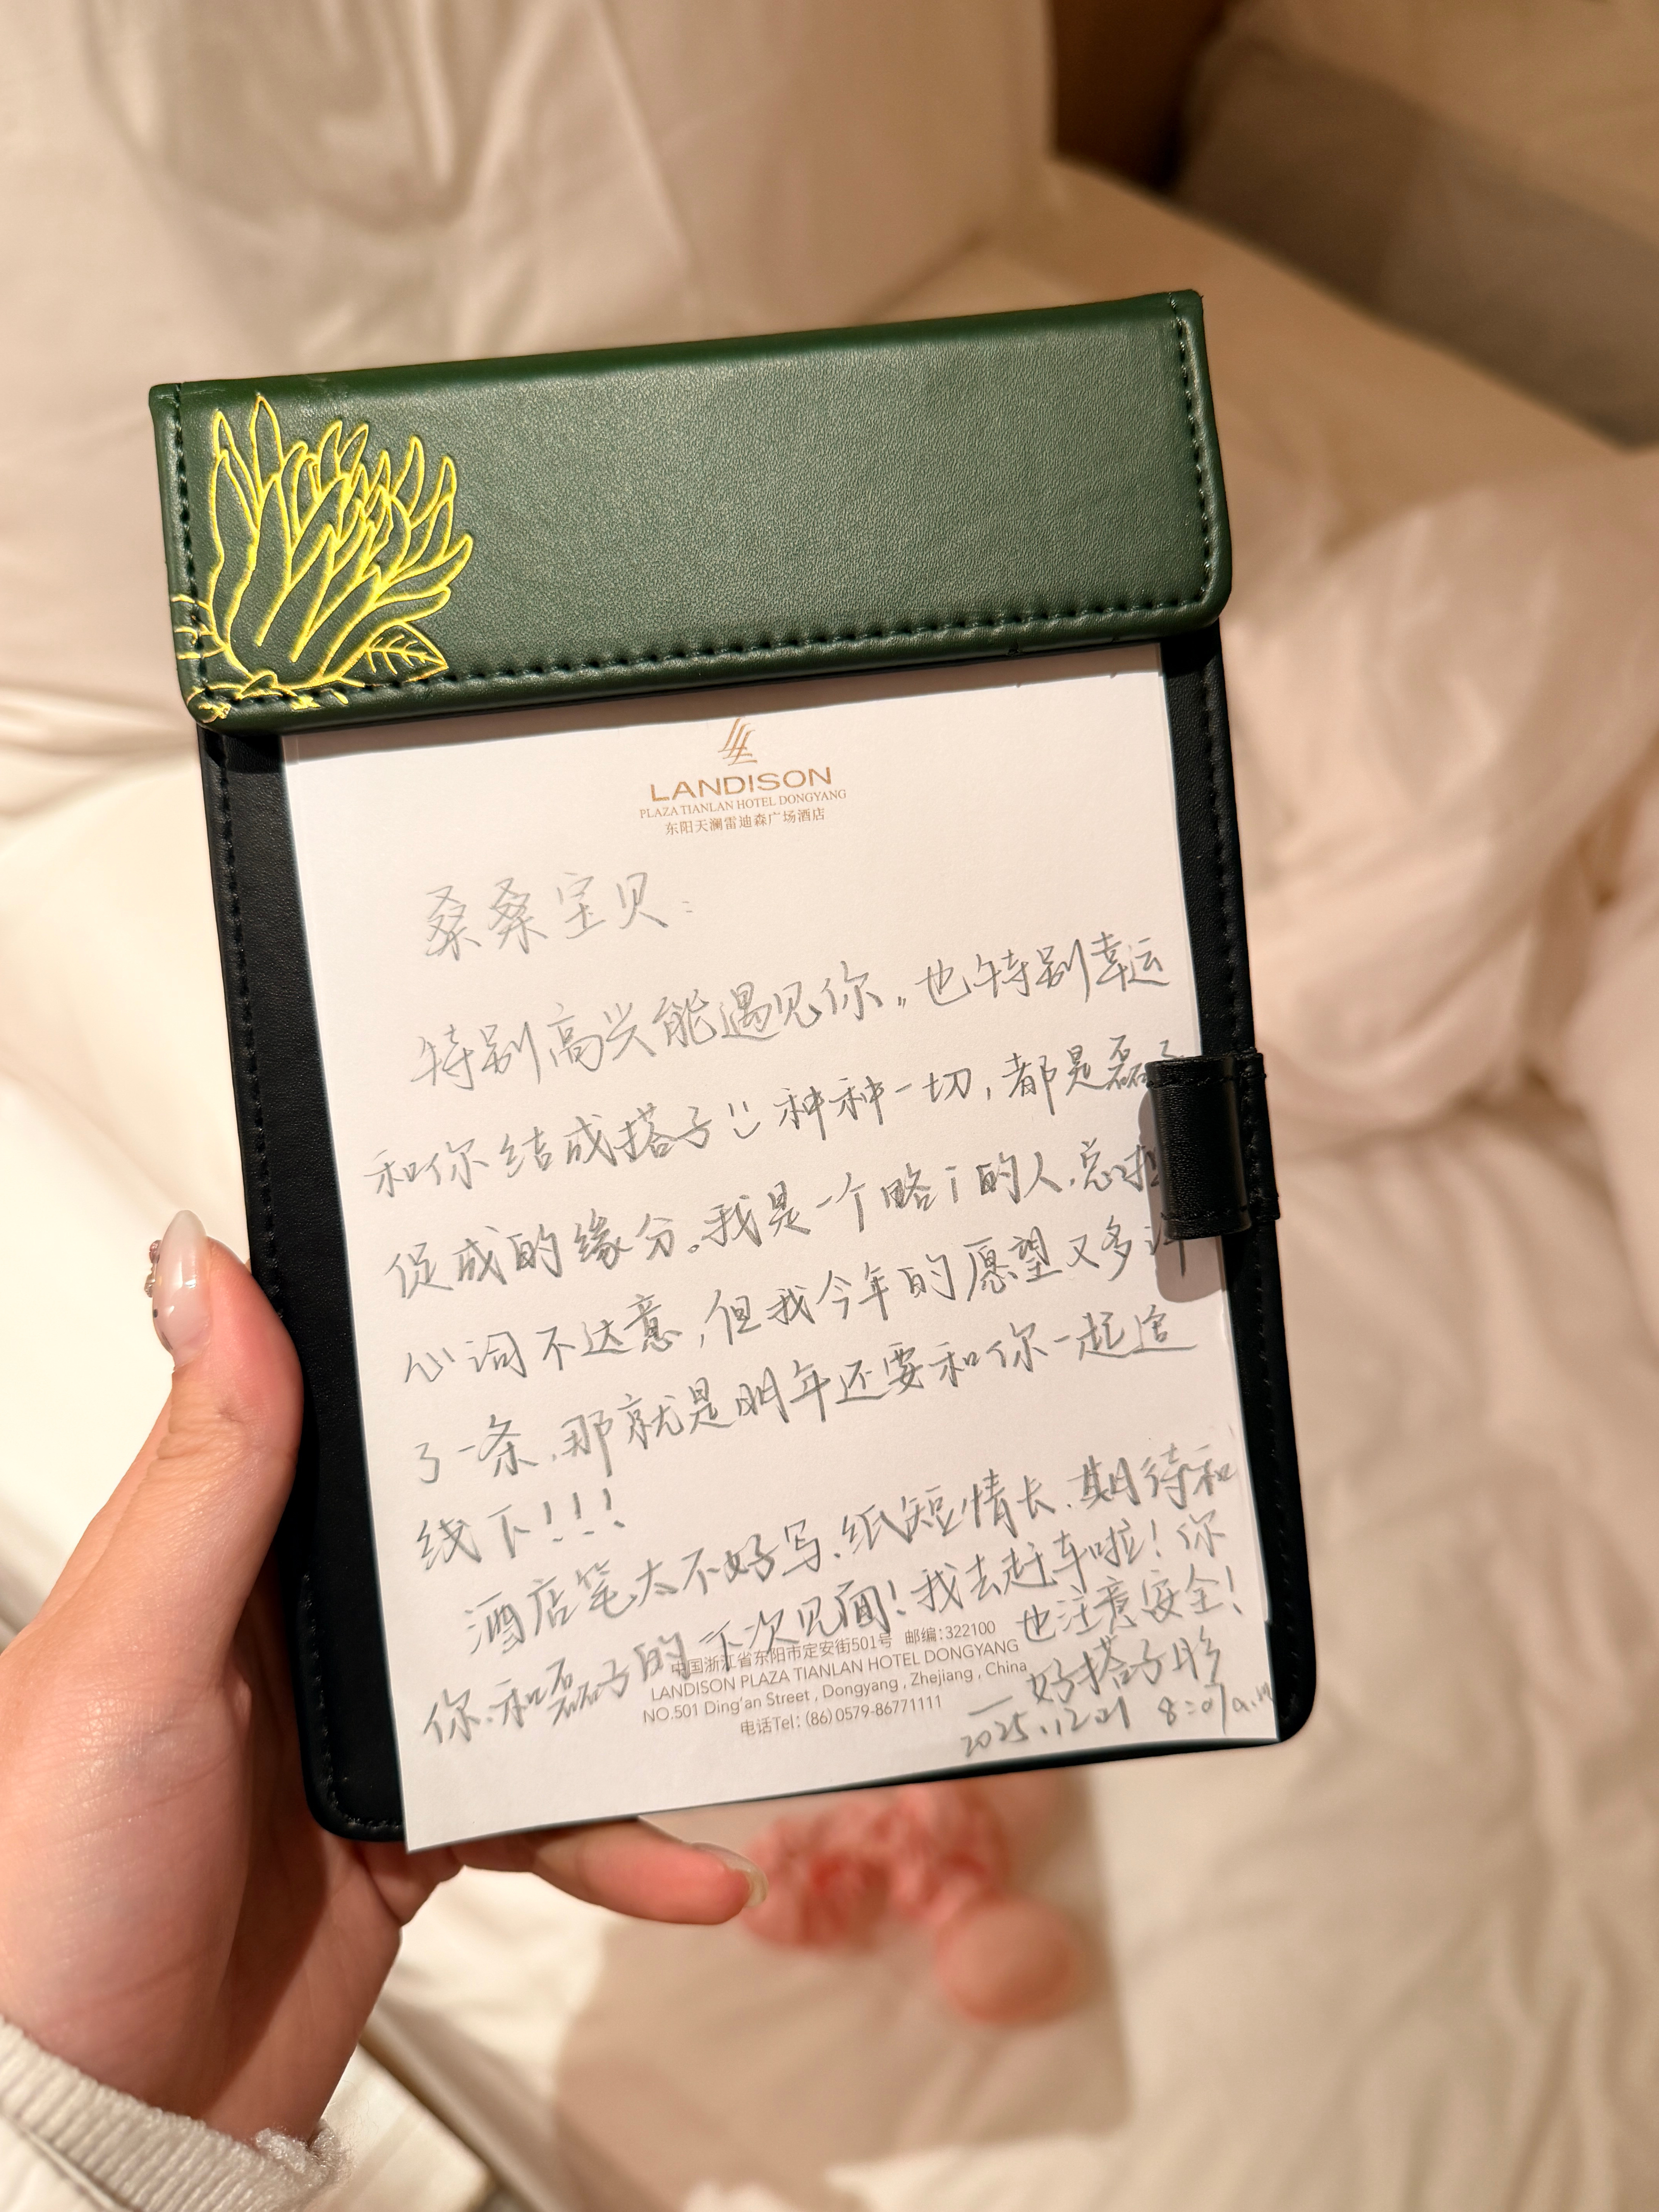 LANDISON
PLAZA TIANLAN HOTEL DONGYANG
东阳天澜雷迪森广场酒店
桑桑宝贝:
特别高兴能遇见你。也特别幸运
和你结成搭子 种种一切,都是磊子
促成的缘分。我是一个略i的人.总担
心词不达意,但我今年的愿望又多许
了一条.那就是明年还要和你一起追
线下!!!
酒店笔太不好写.纸短情长.期待和
你.和磊子的下次见面!我去赶车啦!你
也注意安全!
—好搭子彤
2025.12.21 8:07a.m
中国浙江省东阳市定安街501号 邮编:322100
LANDISON PLAZA TIANLAN HOTEL DONGYANG
NO.501 Ding'an Street , Dongyang , Zhejiang , China
电话Tel: (86) 0579-86771111